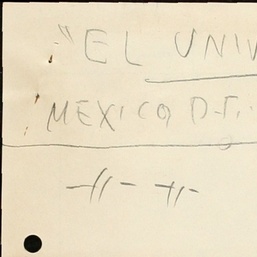 "EL UNIV
MEXICO D.F.
-//- -//-